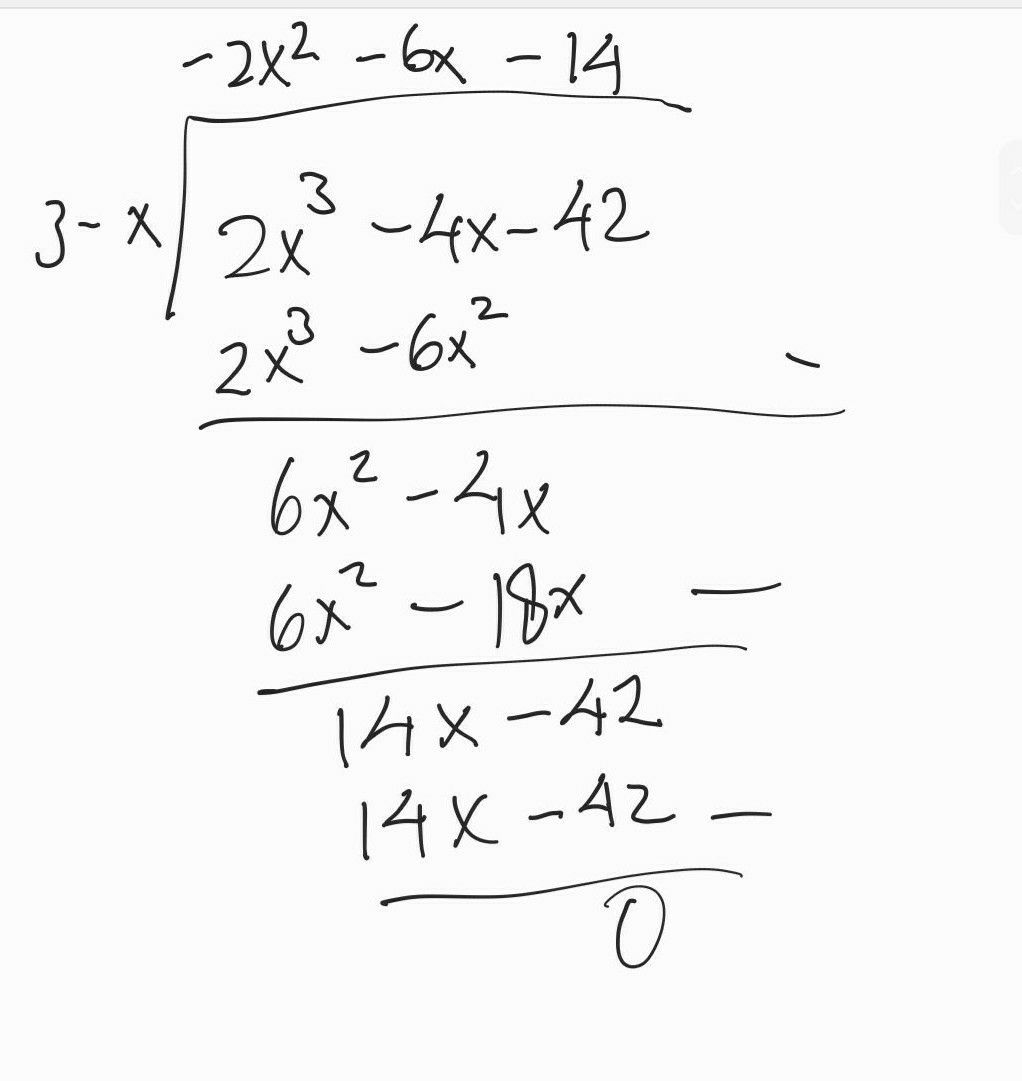 -2x² - 6x - 14
3 - x 2x³ - 4x - 42
2x³ - 6x² -
6x² - 4x
6x² - 18x -
14x - 42
14x - 42 -
0